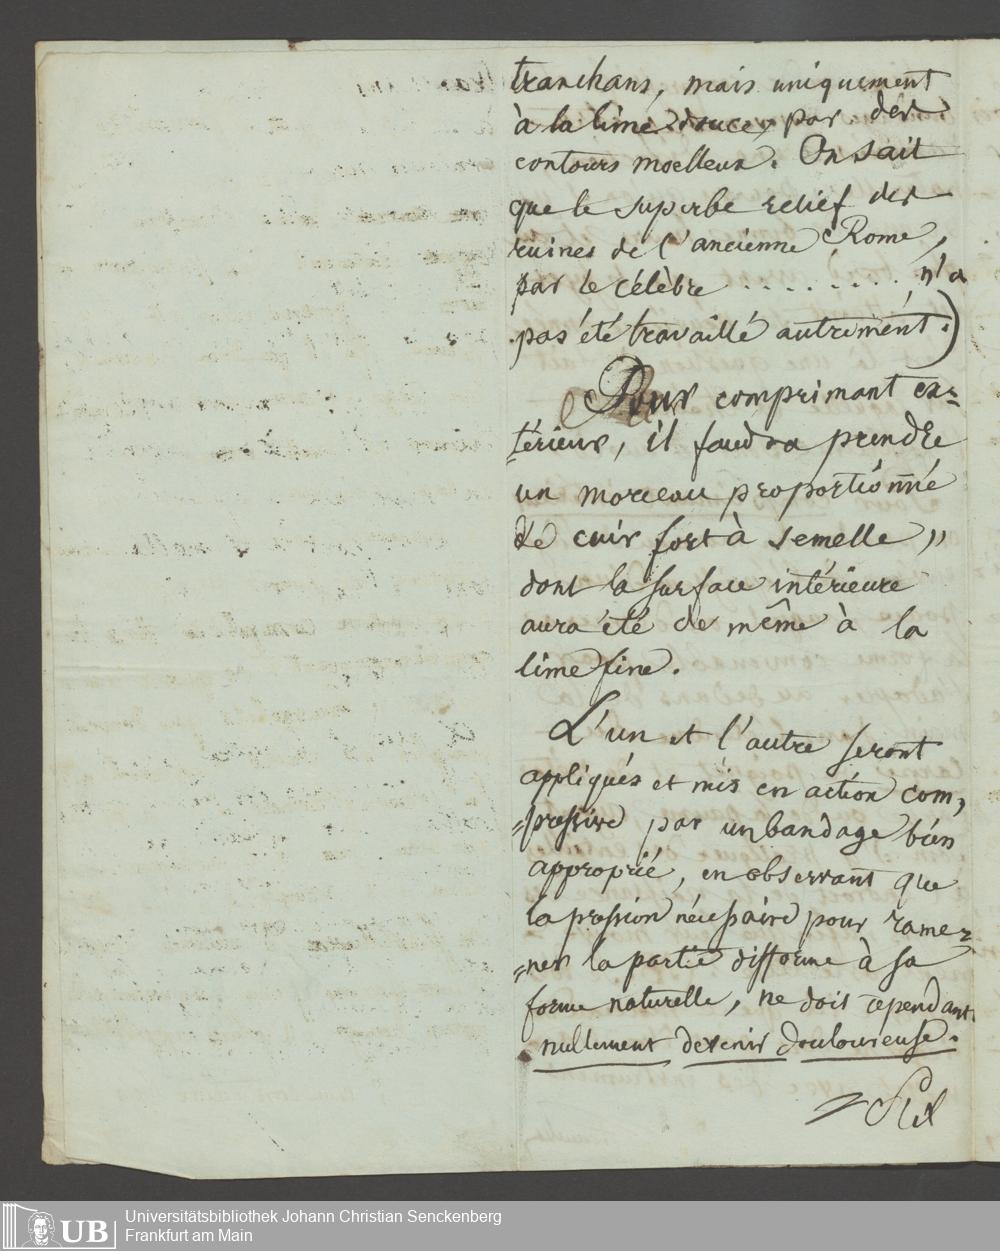 tranchans, mais uniquement
à la lime douce par des
contours moelleux. On sait
que le superbe relief des
ruines de l'ancienne Rome,
par le célèbre . . . . . . . . n'a
pas été travaillé autrement.)
Pour comprimant ex=
=térieur, il faudra prendre
un morceau proportionné
de cuir fort à semelle,,
dont la surface intérieure
aura été de même à la
lime fine.
L'un et l'autre seront
appliqués et mis en action com,
=pressive par un bandage bien
approprié, en observant que
la pression nécessaire pour rame=
=ner la partie difforme à sa
forme naturelle, ne doit cependant
nullement devenir douloureuse.
UB
Universitätsbibliothek Johann Christian Senckenberg
Frankfurt am Main